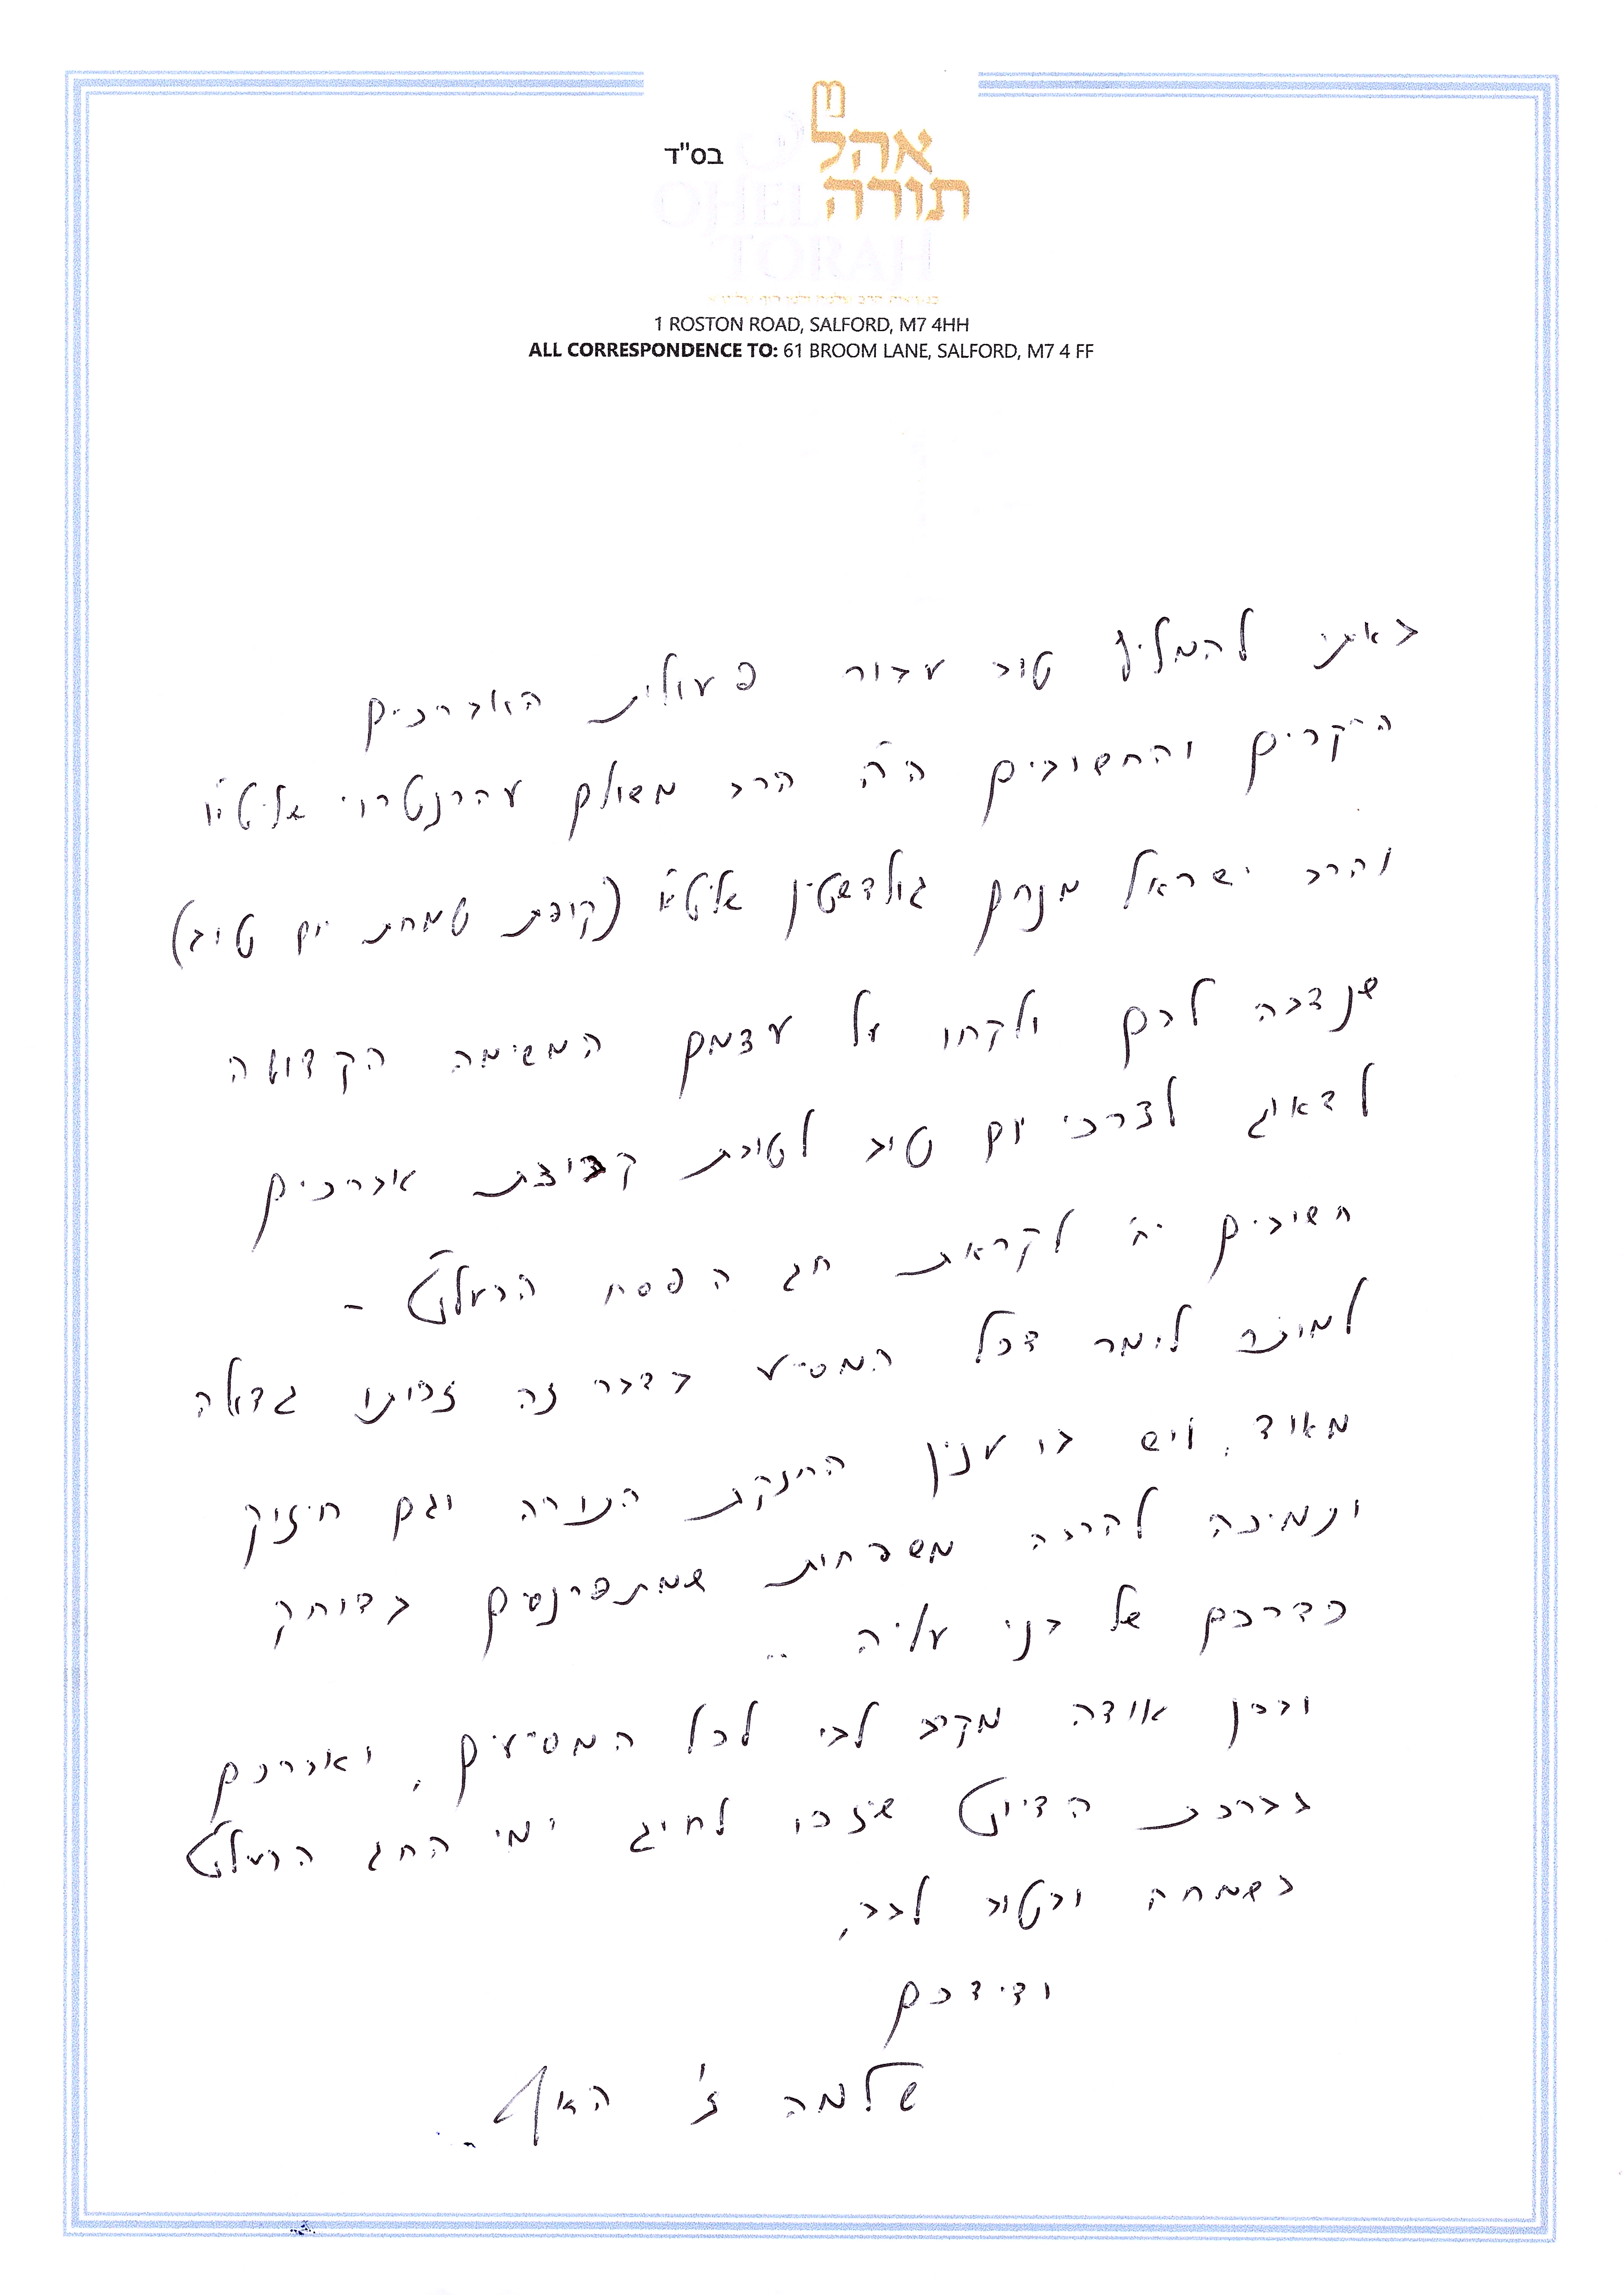 בס"ד
אהל
תורה
OHEL
TORAH
1 ROSTON ROAD, SALFORD, M7 4HH
ALL CORRESPONDENCE TO: 61 BROOM LANE, SALFORD, M7 4 FF
באתי להמליץ טוב עבור פעולת האברכים
היקרים והחשובים ה"ה הרב משולם עהרנטרוי שליט"א
והרב ישראל מנחם גולדשטין שליט"א (קופת שמחת יום טוב)
שנדבה לבם ולקחו על עצמם המשימה הקדושה
לדאוג לצרכי יום טוב לטובת קבוצת אברכים
חשובים יה לקראת חג הפסח הבעל"ט -
למותר לומר דכל המסייע בדבר זה זכותו גדולה
מאוד, ויש בו ענין החזקת התורה וגם חיזוק
ותמיכה להרבה משפחות שמתפרנסים בדוחק
כדרכם של בני עליה ..
ובכן אודה מקרב לבי לכל המסייעים, ואברכם
בברכת הדיוט שיזכו לחוג ימי החג הבעל"ט
בשמחה ובטוב לבב,
ידידכם
שלמה ז' האף